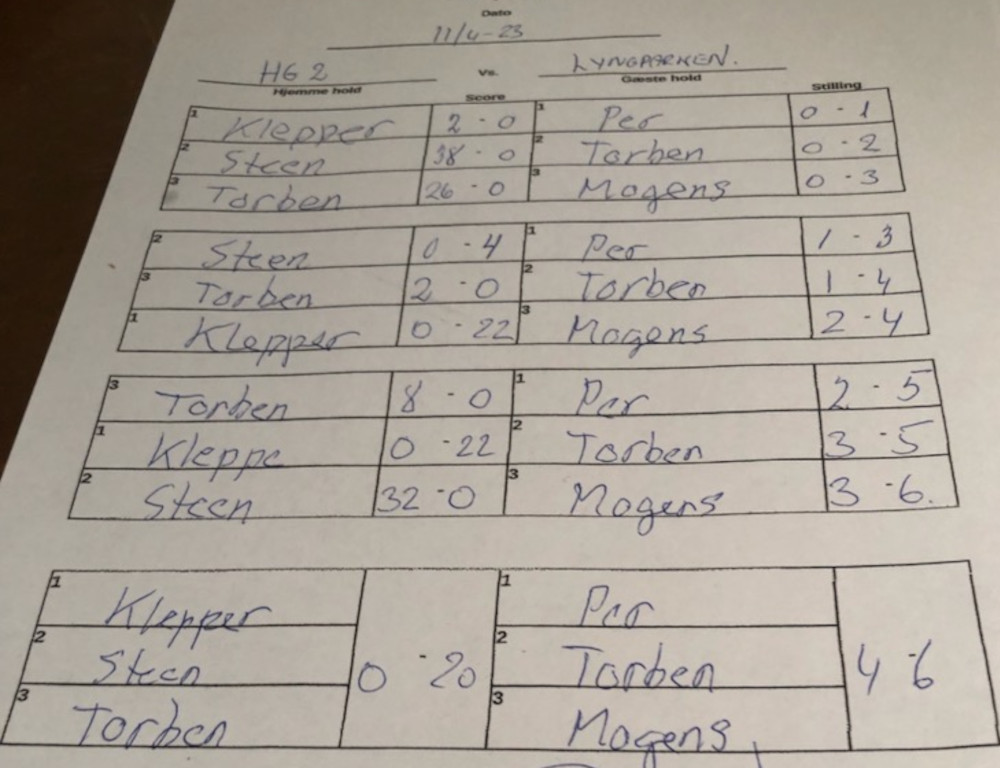 Dato
11/4-23
HG 2 Vs. LYNGPARKEN.
Hjemme hold Gæste hold
Score Stilling
1 Klepper 2 - 0 1 Per 0 - 1
2 Steen 38 - 0 2 Torben 0 - 2
3 Torben 26 - 0 3 Mogens 0 - 3
2 Steen 0 - 4 1 Per 1 - 3
3 Torben 2 - 0 2 Torben 1 - 4
1 Klepper 0 - 22 3 Mogens 2 - 4
3 Torben 8 - 0 1 Per 2 - 5
1 Kleppe 0 - 22 2 Torben 3 - 5
2 Steen 32 - 0 3 Mogens 3 - 6.
1 Klepper 1 Per
2 Steen 0 - 20 2 Torben 4 - 6
3 Torben 3 Mogens